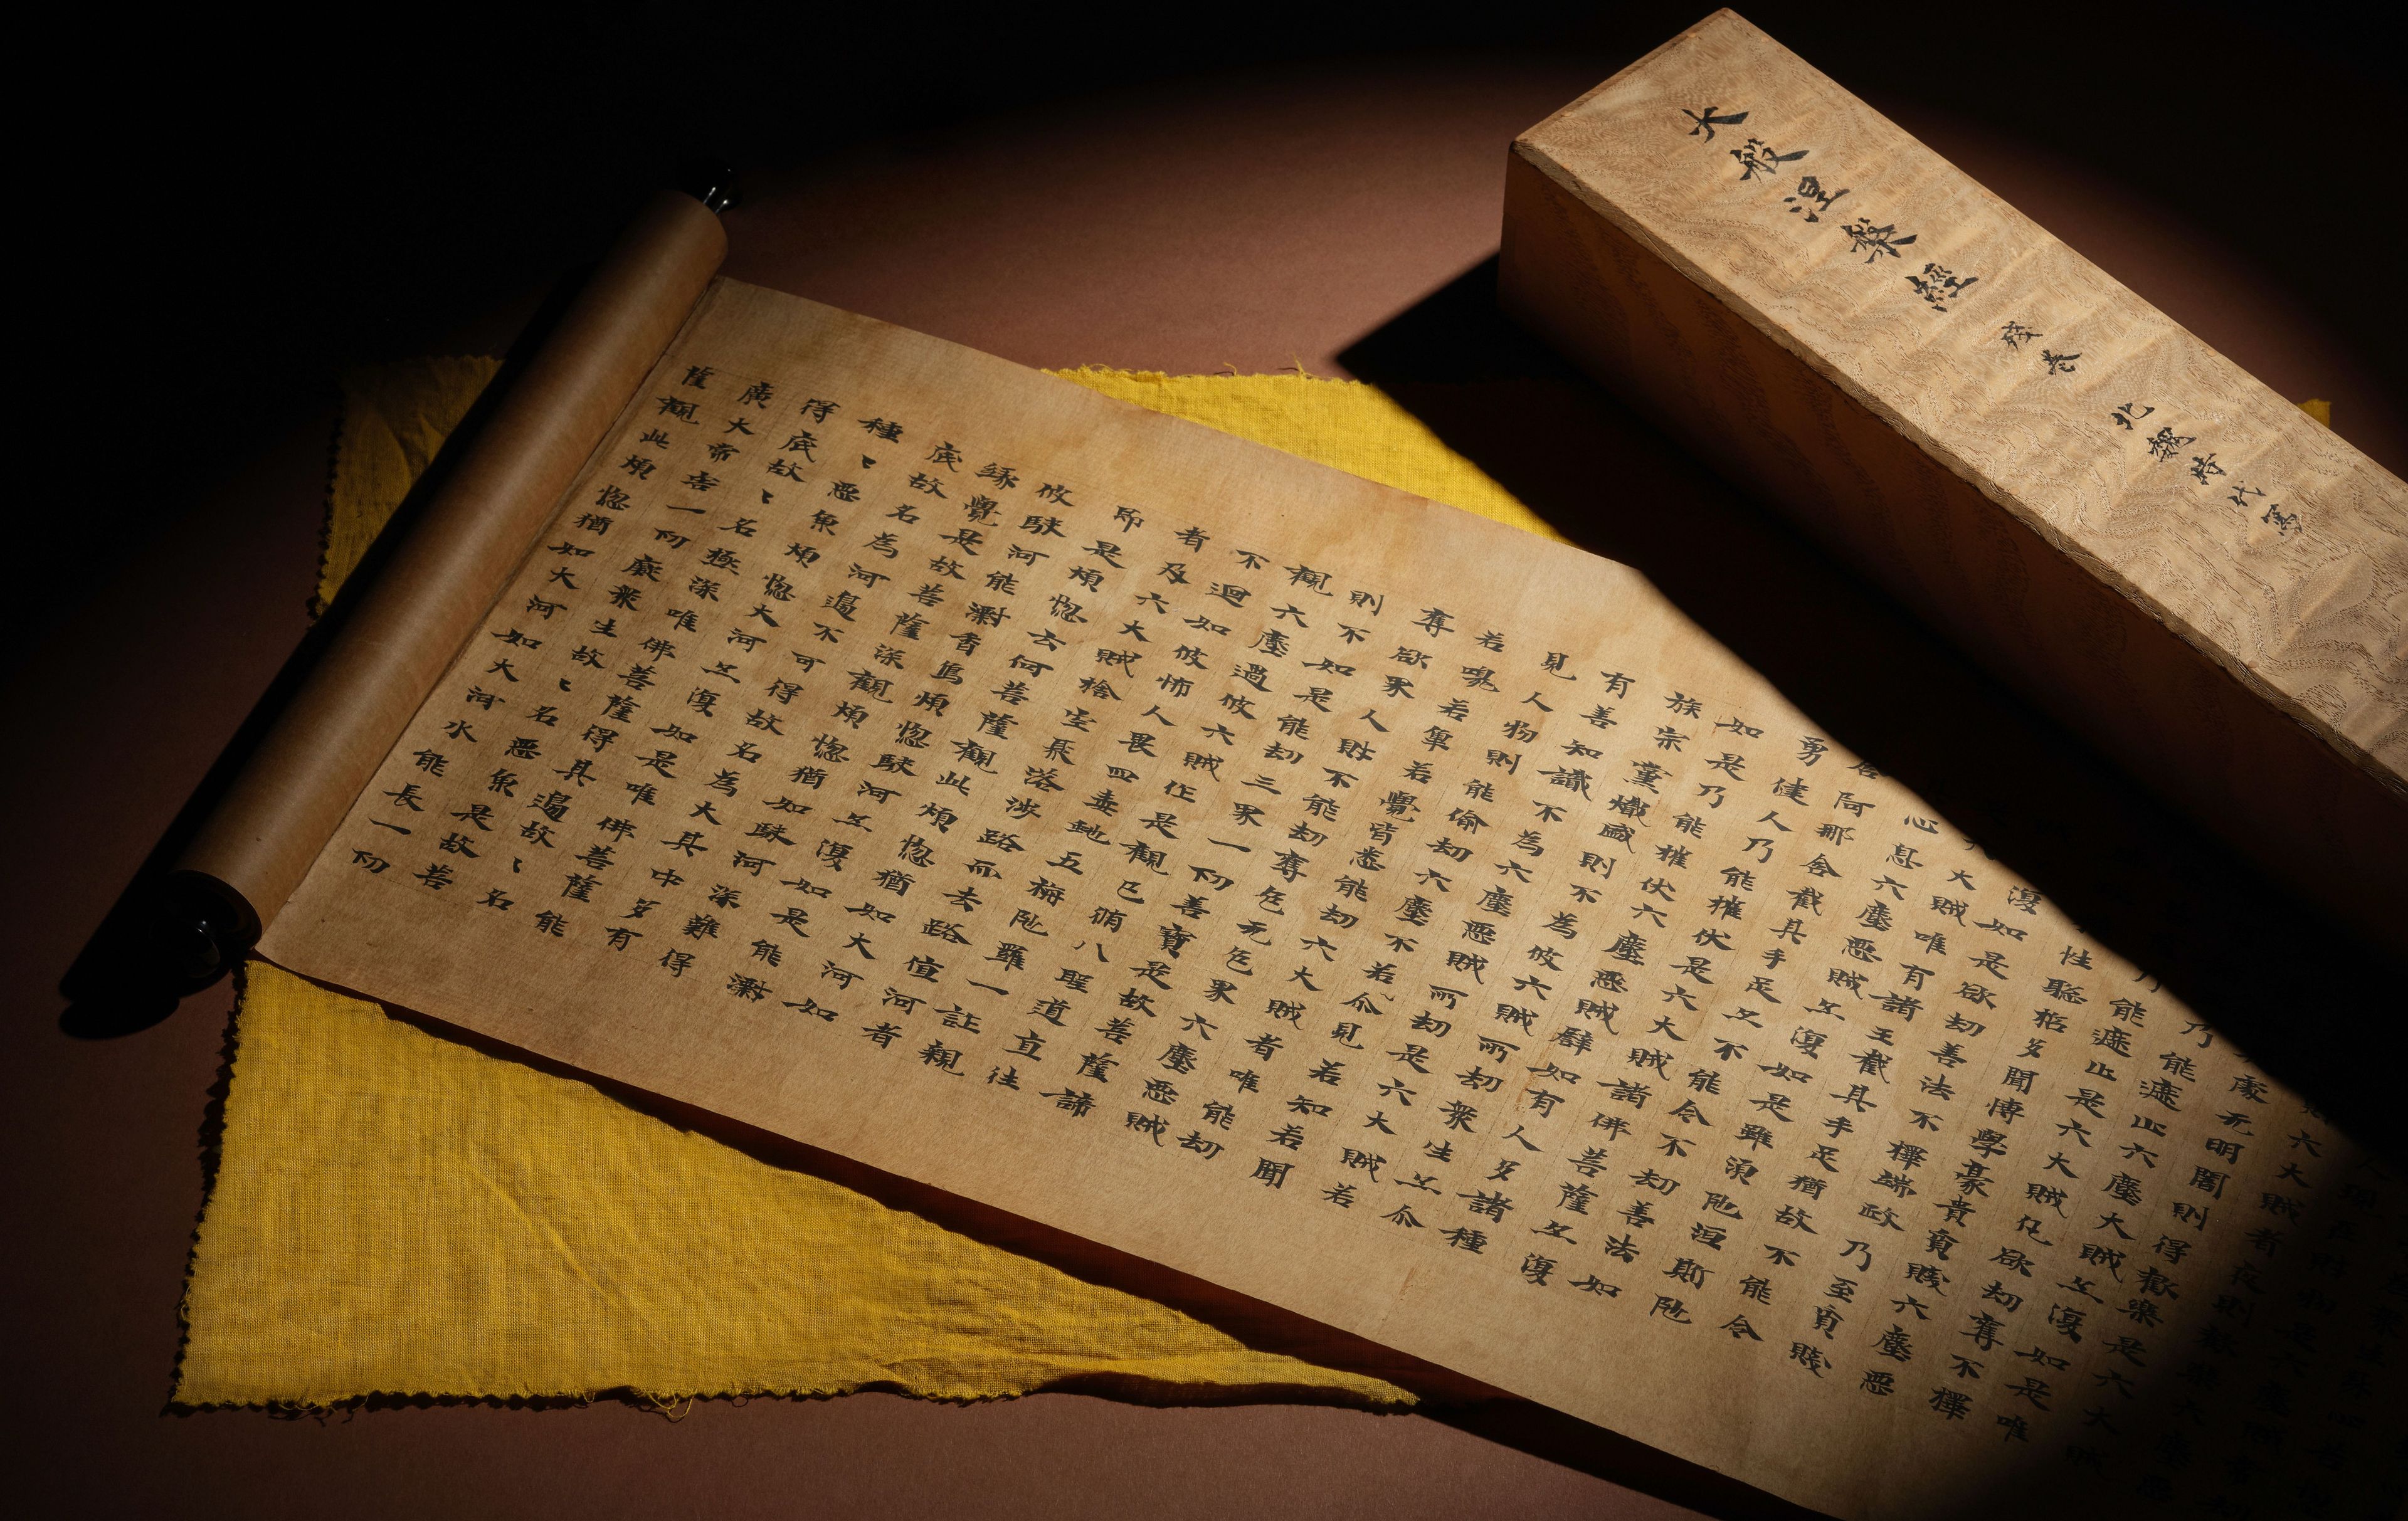 大般涅槃經 殘卷 北魏時代寫
六大賊者夜則
處无明闇則得歡樂是六大
乃能遮止六塵大賊亦復如是唯
能遮止是六大賊凡欲劫奪不擇
性聡悊多聞博學豪貴貧賤六塵惡
復如是欲劫善法不擇端政乃至貧賤
大賊唯有諸王截其手足猶故不能令
心息六塵惡賊亦復如是雖須陁洹斯陁
含阿那含截其手足亦不能令不劫善法如
勇健人乃能摧伏是六大賊諸佛菩薩亦復
如是乃能摧伏六塵惡賊辟如有人多諸種
族宗黨熾盛則不為彼六賊所劫衆生亦尒
有善知識不為六塵惡賊所劫是六大賊若
見人物則能偷劫六塵不若尒見若知若聞
若嗅若若覺皆悉能劫六大賊者唯能劫
奪欲界人財不能劫奪色无色界六塵惡賊
則不如是能劫三界一切善寶是故菩薩諦
觀六塵過彼六賊作是觀已脩八聖道直往
不迴如彼怖人畏四毒虵五栴陁羅一詐親
者及六大賊捨空聚落涉路而去路值河者
即是煩惱云何菩薩觀此煩惱猶如大河如
彼駛河能漂香象煩惱駛河亦復如是能漂
緣覺是故菩薩深觀煩惱猶如駛河深難得
底故名為河邊不可得故名為大其中多有
種〻惡魚煩惱大河亦復如是唯佛菩薩能
得底故〻名極深唯佛菩薩得其邊故〻名
廣大常害一切癡衆生故〻名惡魚是故菩
薩觀此煩惱猶如大河如大河水能長一切